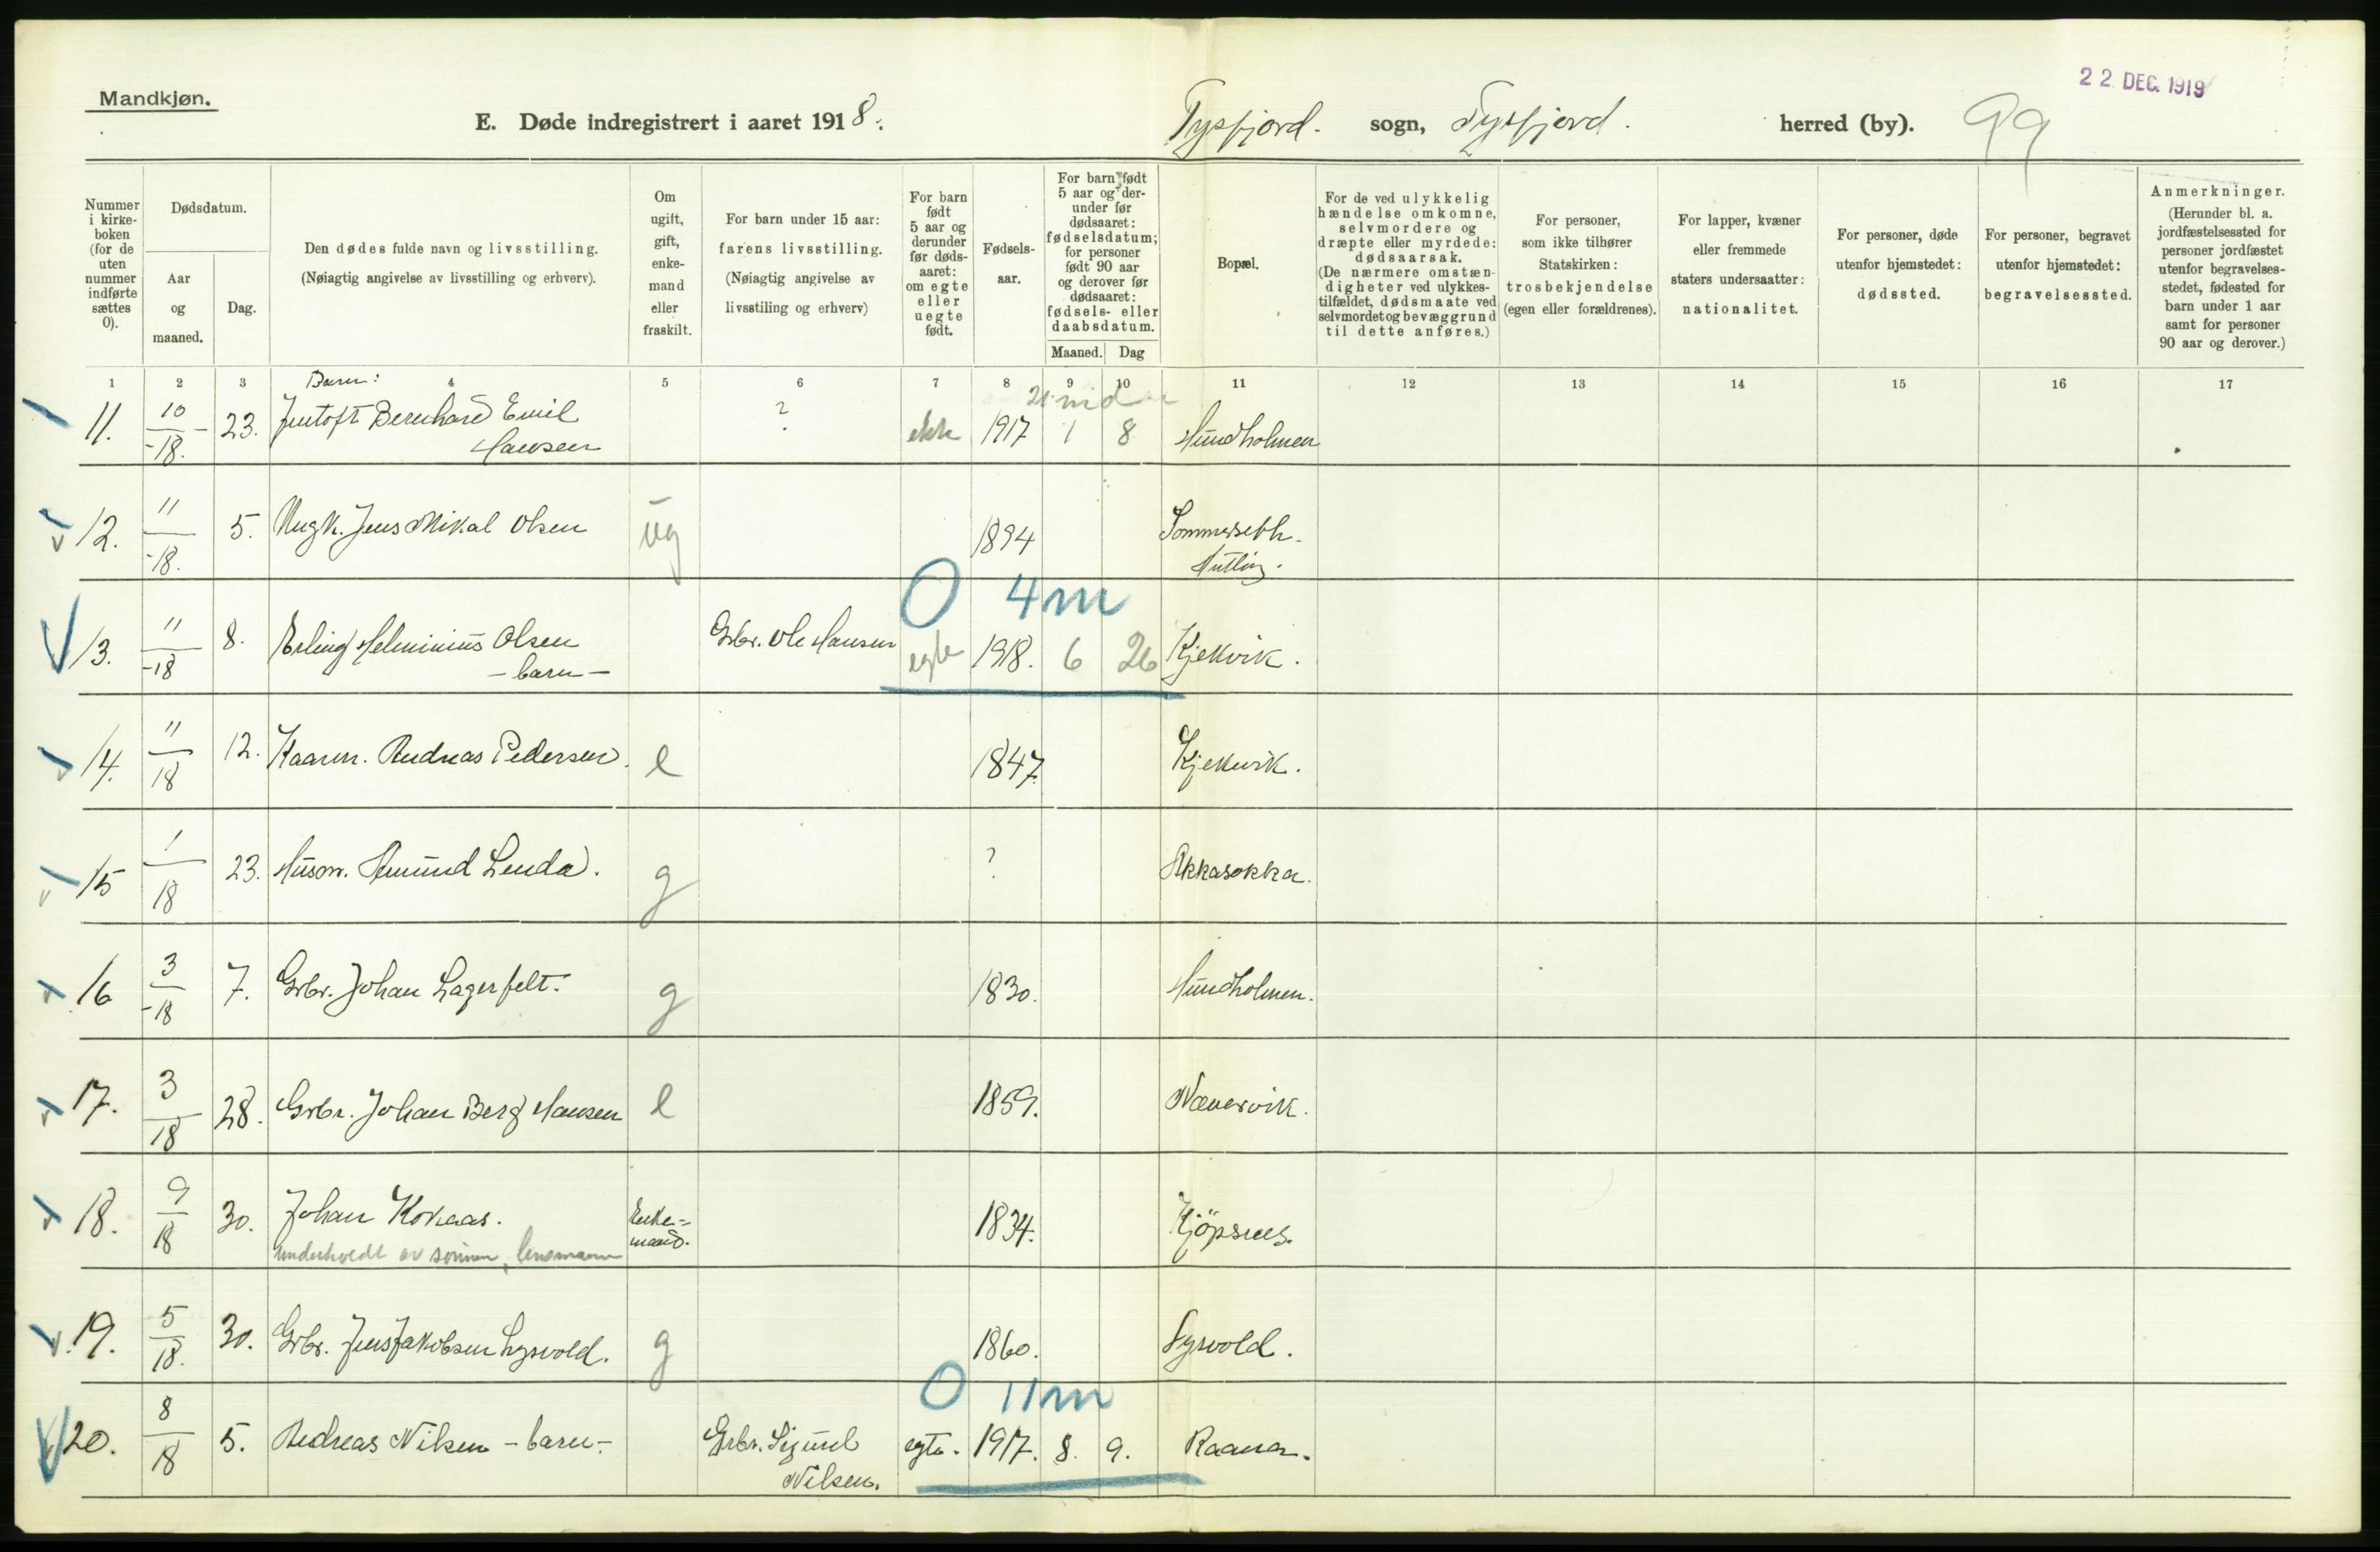 22 DEC. 1919
Mandkjøn.
E. Døde indregistrert i aaret 1918. Tysfjord. sogn, Tysfjord. herred (by). 99
Nummer i kirkeboken (for de uten nummer indførte sættes 0).
Dødsdatum.
Aar og maaned.
Dag.
Den dødes fulde navn og livsstilling.
(Nøiagtig angivelse av livsstilling og erhverv).
Om ugift, gift, enkemand eller fraskilt.
For barn under 15 aar:
farens livsstilling.
(Nøiagtig angivelse av livsstiling og erhverv)
For barn født 5 aar og derunder før dødsaaret: om egte eller uegte født.
Fødselsaar.
For barn født 5 aar og derunder før dødsaaret: fødselsdatum; for personer født 90 aar og derover før dødsaaret: fødsels- eller daabsdatum.
Maaned. Dag
Bopæl.
For de ved ulykkelig hændelse omkomne, selvmordere og dræpte eller myrdede: dødsaarsak.
(De nærmere omstændigheter ved ulykkestilfældet, dødsmaate ved selvmordet og bevæggrund til dette anføres.)
For personer, som ikke tilhører Statskirken: trosbekjendelse (egen eller forældrenes).
For lapper, kvæner eller fremmede staters undersaatter: nationalitet.
For personer, døde utenfor hjemstedet: dødssted.
For personer, begravet utenfor hjemstedet: begravelsessted.
Anmerkninger.
(Herunder bl. a. jordfæstelsessted for personer jordfæstet utenfor begravelsesstedet, fødested for barn under 1 aar samt for personer 90 aar og derover.)
1 2 3 4 5 6 7 8 9 10 11 12 13 14 15 16 17
Barn:
11. 10/-18. 23. Jentoft Bernhard Emil ? 1917 1 8 Hundholmen
Hansen
12. 11/-18. 5. Ungk. Jens Mikal Olsen ug 1894
0 4m
13. 11/-18 8. Erling Helminius Olsen Grbr. Ole Hansen egte 1918. 6 26 Kjekvik.
- barn -
14. 11/18 12. Kaarm. Andreas Pedersen. e 1847. Kjekvik.
15 1/18 23. Husm. Amund Lenda. g ? Akkasokka.
16 3/-18 7. Grbr. Johan Lagerfelt. g 1830. Hundholmen.
17. 3/18 28. Grbr. Johan Berg Hansen e 1859. Nævervik.
18. 9/18 30. Johan Kokaas. Enke=mand. 1834. Kjöpsnes.
underholdt av sønnen, lensmann
19. 5/18. 30. Grbr. Jens Jakobsen Lysvold. g 1860. Lysvold.
0 11m
20. 8/18 5. Andreas Nilsen - barn - Grbr. Sigurd egte. 1917. 8. 9. Raana.
Nilsen.